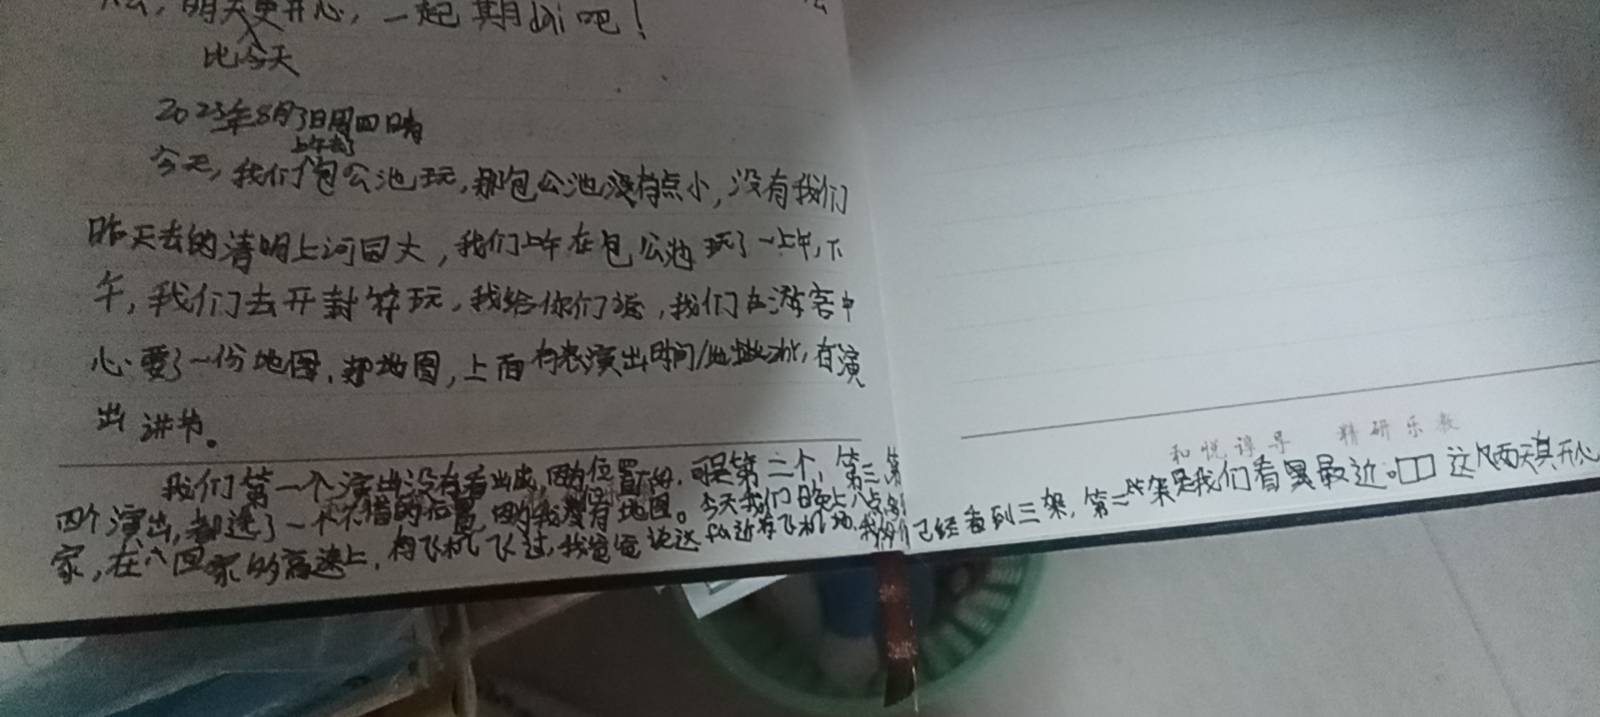 明天更开心，一起期dai吧！
比今天
2023年8月3日周四 晴
上午去了
今天，我们包公池玩，那包公池没有点小，没有我们
昨天去的清明上河园大，我们上午在包公池玩了一上午，下
午，我们去开封府玩，我给你们说，我们在游客中
心要了一份地图，那地图，上面有表演出时间/地址，有演
出讲节。
我们第一个演出没有看出成，因为位置，可是第二个，第三、第
四个演出，都选了一个不错的位置，因为我没有地图。今天我们晚上八点
家，在八回家的高速上，有飞机飞过，我爸爸说这附近有飞机场，我们已经看到三架，第二架是我们看最近。这几天真开心
和悦谆寻 精研乐教